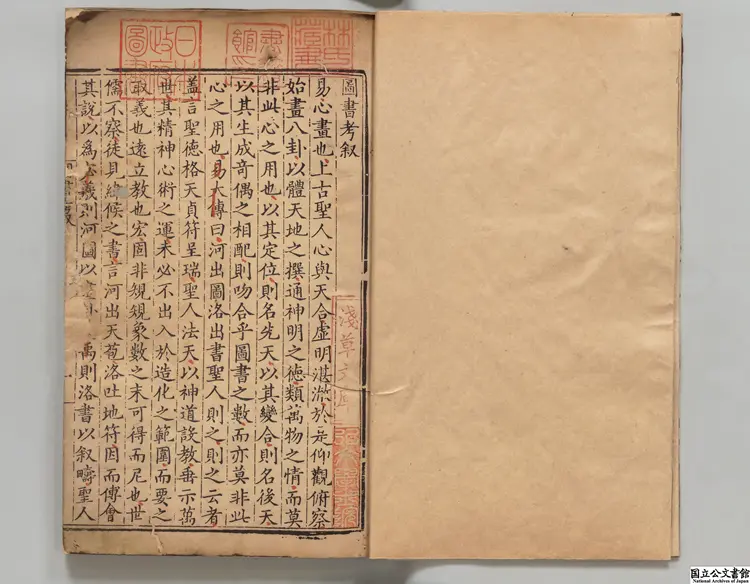 圖書考叙
易心畫也上古聖人心與天合虛明湛澈於是仰觀俯察
始畫八卦以體天地之撰通神明之德類萬物之情而莫
非此心之用也以其定位則名先天以其變合則名後天
以其生成竒偶之相配則吻合乎圖書之數而亦莫非此
心之用也易大傳曰河出圖洛出書聖人則之則之云者
蓋言聖德格天貞符呈瑞聖人法天以神道設教垂示萬
世其精神心術之運未必不出入於造化之範圍而要之
取義也遠立教也宏固非䂓䂓象數之末可得而尼也世
儒不察徒見緯候之書言河出天苞洛吐地符因而傅會
其說以爲 羲則河圖以畫卦 禹則洛書以叙疇聖人
日本
政府
圖書
淺草文庫
国立公文書館
National Archives of Japan